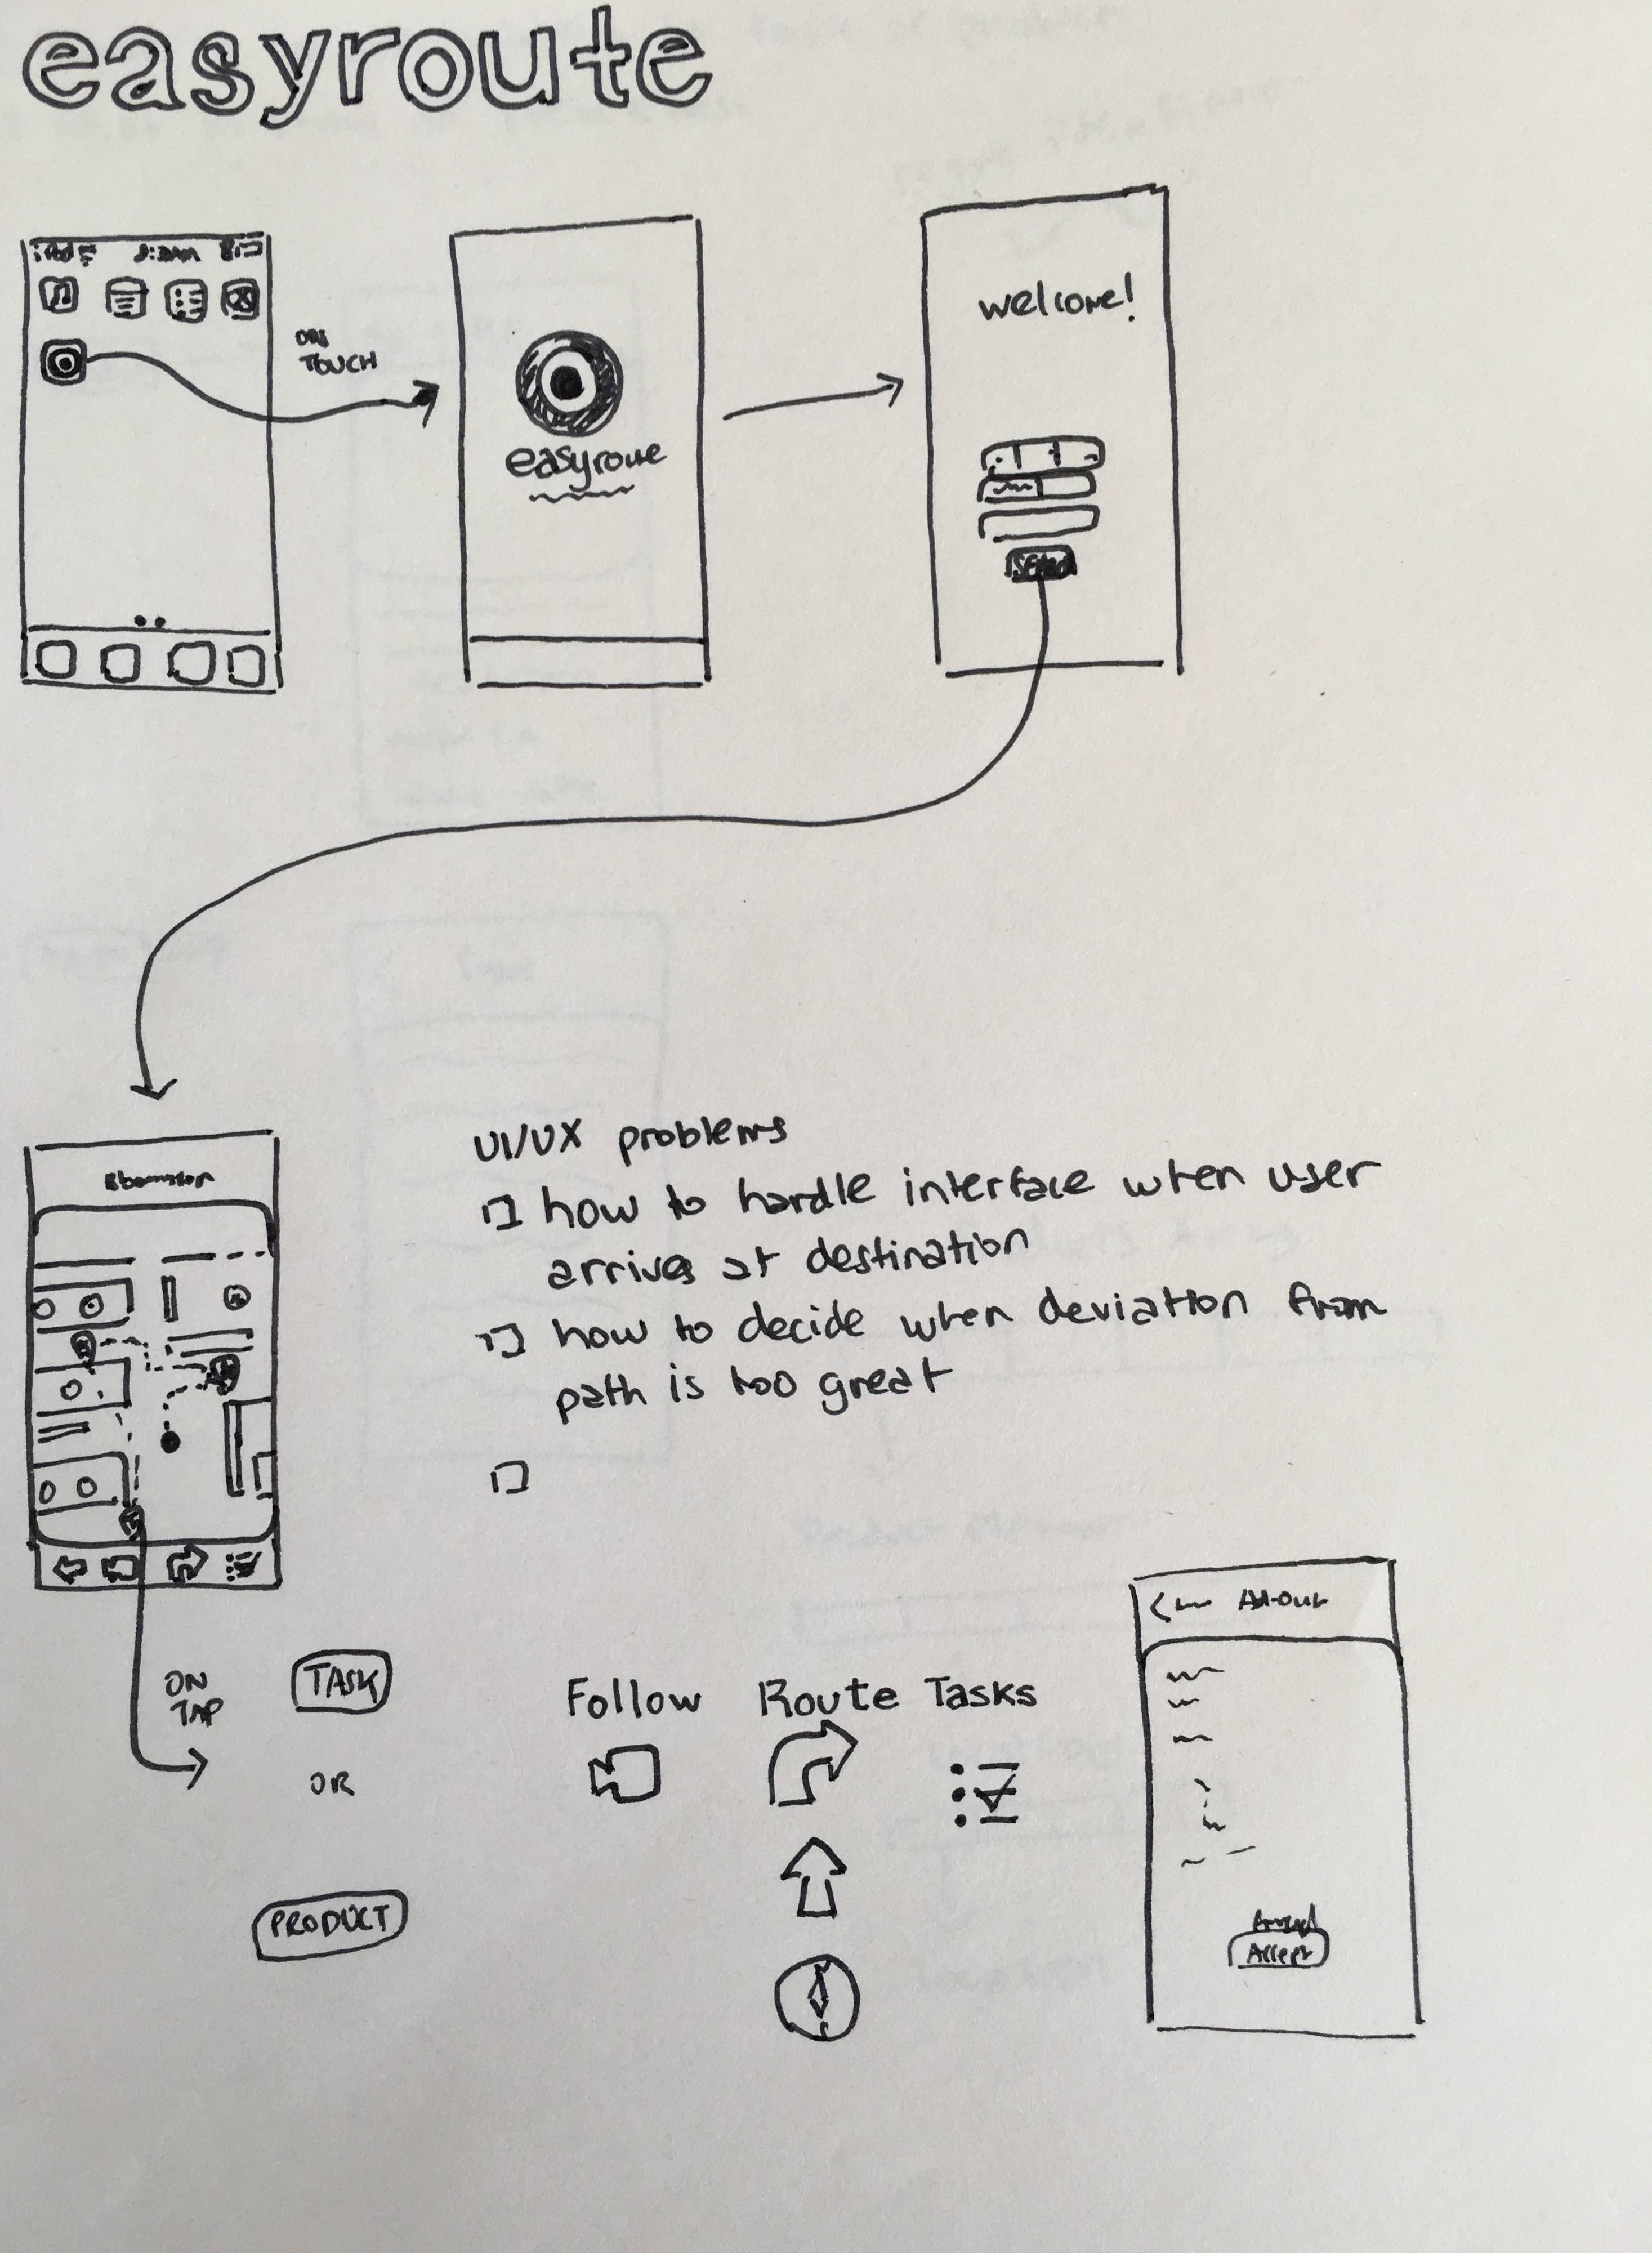 easyroute
ON
TOUCH
easyroute
welcome!
SEND
UI/UX problems
how to handle interface when user
arrives at destination
how to decide when deviation from
path is too great
ON
TAP
TASK
OR
PRODUCT
Follow Route Tasks
Accept